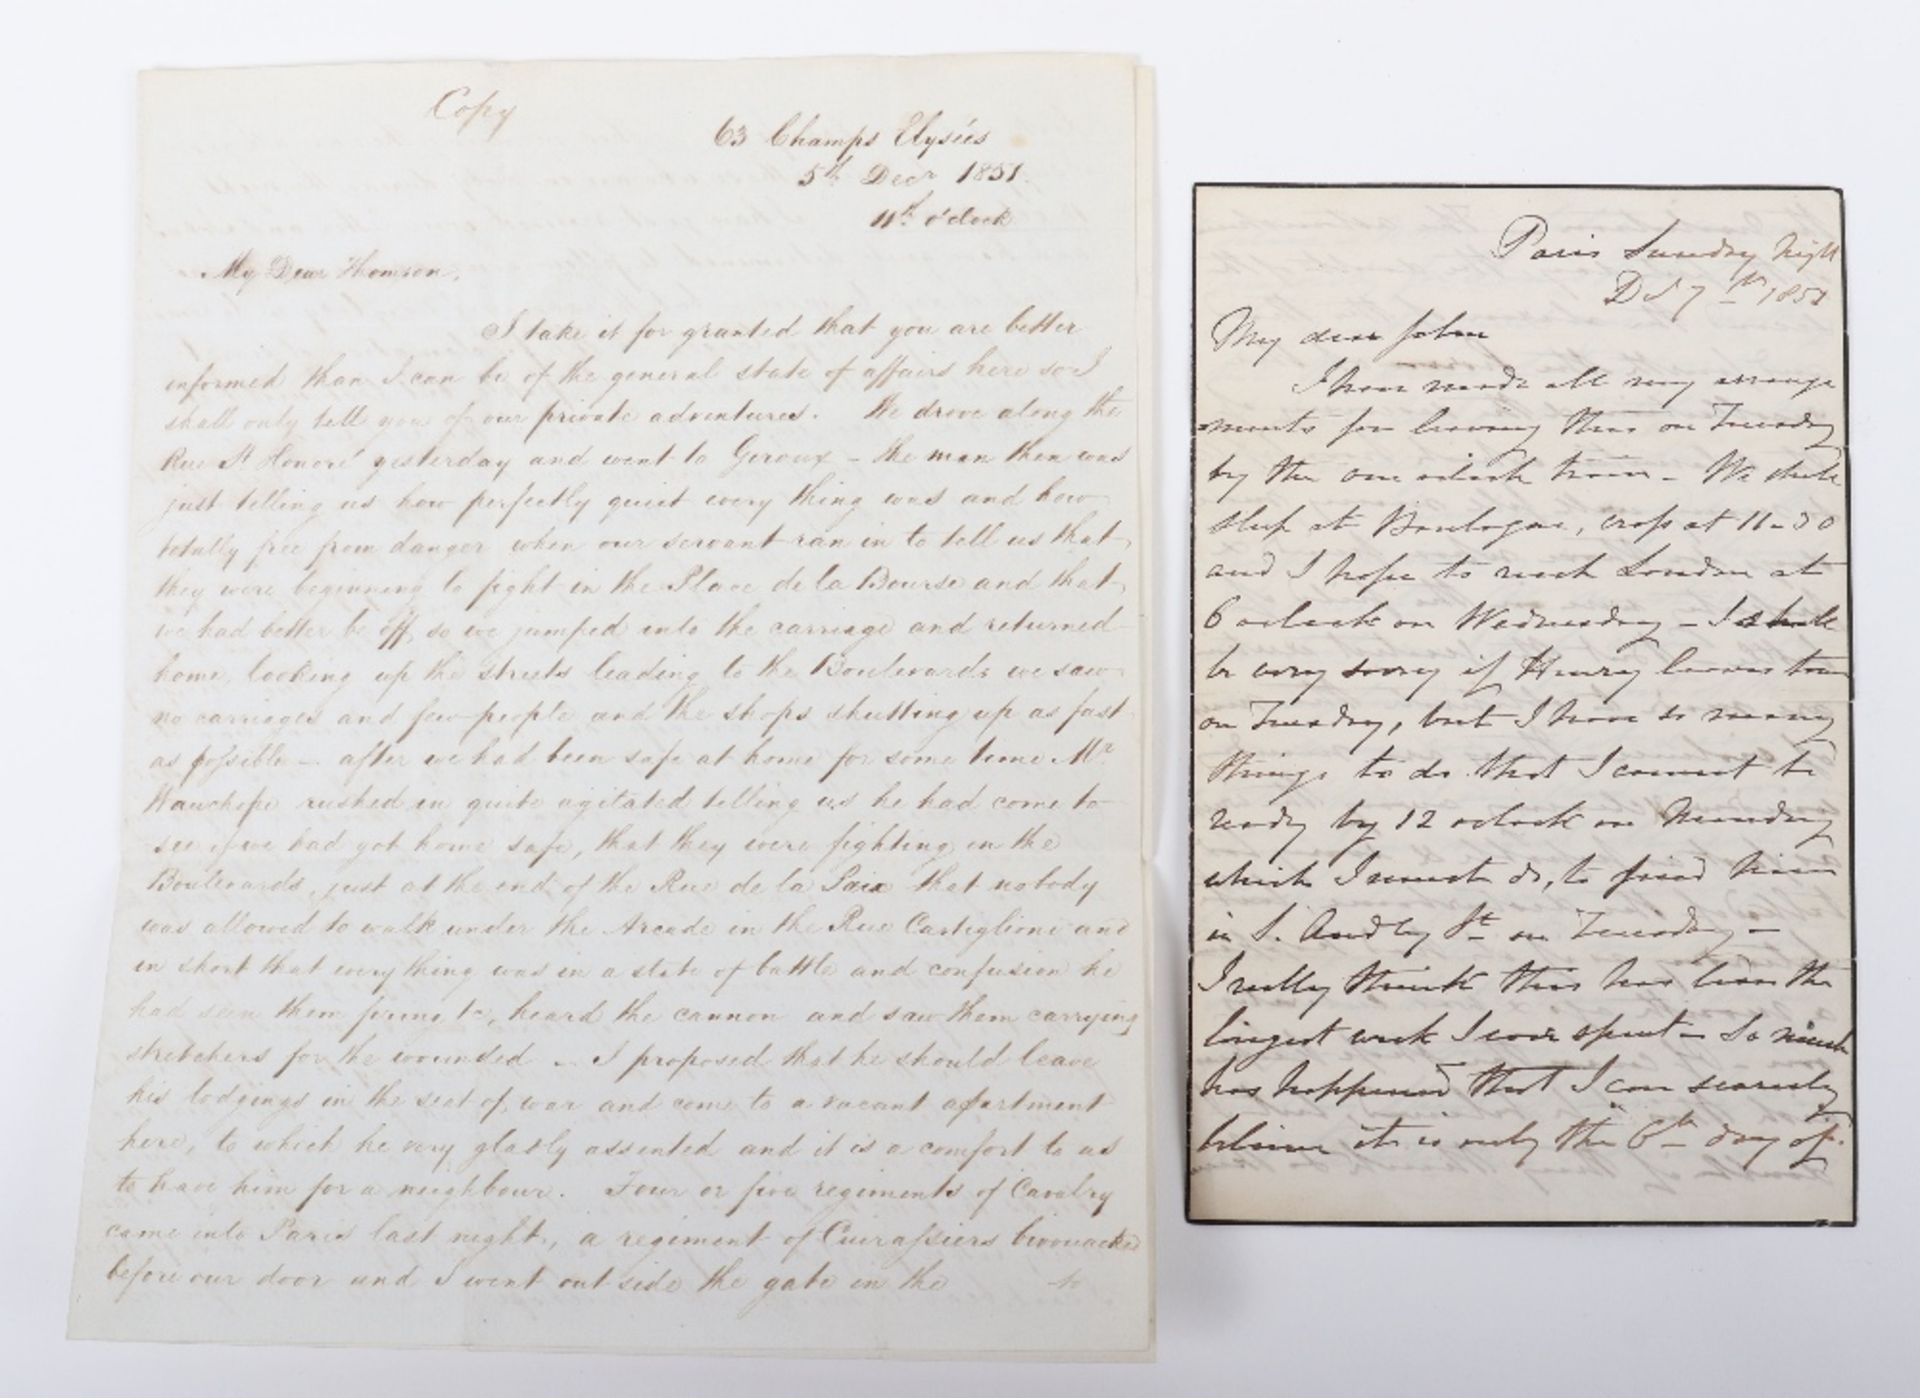 Copy
63 Champs Elysées
5th Decr 1851.
11th o'clock
My Dear Thomson,
I take it for granted that you are better
informed than I can be of the general state of affairs here so I
shall only tell you of our private adventures. We drove along the
Rue St Honoré yesterday and went to Giroux – the man then was
just telling us how perfectly quiet every thing was and how
totally free from danger when our servant ran in to tell us that
they were beginning to fight in the Place de la Bourse and that
we had better be off, so we jumped into the carriage and returned
home, looking up the streets leading to the Boulevards we saw
no carriages and few people and the shops shutting up as fast
as possible – after we had been safe at home for some time Mr
Wauchope rushed in quite agitated telling us he had come to
see if we had got home safe, that they were fighting in the
Boulevards, just at the end of the Rue de la Paix that nobody
was allowed to walk under the Arcade in the Rue Castiglioni and
in short that every thing was in a state of battle and confusion he
had seen them firing &c, heard the cannon and saw them carrying
stretchers for the wounded – I proposed that he should leave
his lodgings in the seat of war and come to a vacant apartment
here, to which he very gladly assented and it is a comfort to us
to have him for a neighbour. Four or five regiments of Cavalry
came into Paris last night, a regiment of Cuirassiers bivouacked
before our door and I went out side the gate in the to
Paris Sunday night
7th 1851
My dear John
I have made all my arrange
ments for leaving this on Tuesday
by the one oclock train – We shall
sleep at Boulogne, cross at 11-30
and I hope to reach London at
6 oclock on Wednesday – I shall
be very sorry if Henry leaves town
on Tuesday, but I have so many
things to do that I cannot be
ready by 12 oclock on Monday
which I must do, to find him
in S. Audley St on Tuesday –
I really think this has been the
longest week I ever spent – So much
has happened that I can scarcely
believe it is only the 6th day of